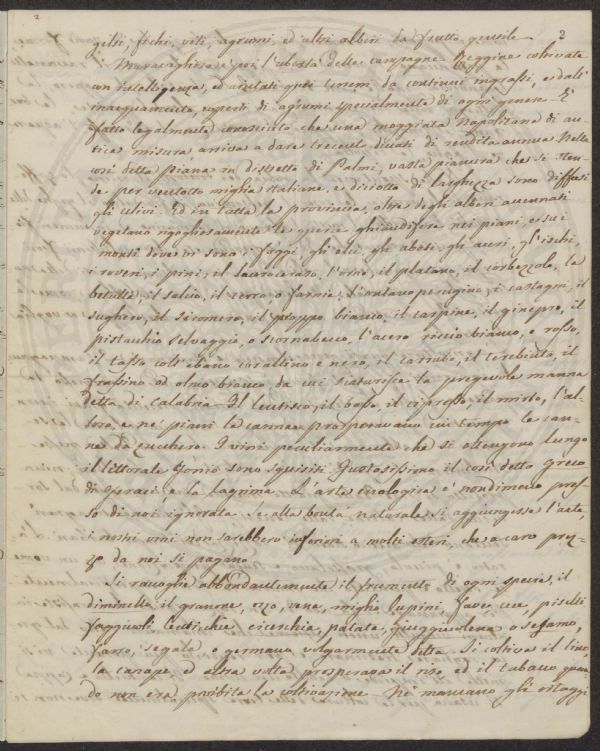 2
2
gelsi, fichi, viti, agrumi, ed altri alberi da frutto gentile
Maravigliosa è poi l'ubertà delle campagne Reggine coltivate
con intelligenza, ed aiutati que' terreni da continui ingrassi, e dall'
inacquamento, coperti di agrumi specialmente di ogni genere. È
fatto legalmente conosciuto che una moggiata Napolitana di an-
tica misura arriva a dare trecento ducati di rendita annua. Nella
così detta Piana in distretto di Palmi, vasta pianura che si sten-
de per ventotto miglia Italiane, e diciotto di larghezza sono diffusi
gli ulivi. Ed in tutta la provincia, oltre degli alberi accennati
vegetano rigogliosamente le querce ghiandifere nei piani, e sui
monti dove vi sono i faggi, gli elci, gli abeti, gli aceri, gl'ischi,
i roveri, i pini, il lauroceraso, l'orno, il platano, il corbezzolo, la
betulla, il salcio, il cerro o farnia, l'ontano peregino, i castagni, il
sughero, il sicomero, il pioppo bianco, il carpine, il ginepro, il
pistacchio selvaggio, o scornabecco, l'acero riccio bianco, e rosso,
il tasso cols ebano corallino e nero, il carrubo, il terebinto, il
frassino od olmo bianco da cui scaturisce la pregevole manna
detta di Calabria. Il lentisco, il bosso, il cipresso, il mirto, l'al-
loro, e ne' piani la canna prosperavano un tempo le can-
ne da zucchero. I vini peculiarmente che si ottengono lungo
il littorale Jonio sono squisiti. Gustosissimo il così detto Greco
di Gerace, e la Lagrima. L'arte enologica è nondimeno pres-
so di noi ignorata. Se alla bontà naturale si aggiungesse l'arte,
i nostri vini non sarebbero inferiori a molti esteri, che a caro prez-
zo da noi si pagano
Si raccoglie abbondantemente il frumento di ogni specie, il
diminella, il granone, orzo, vena, miglio, lupini, fave, cece, piselli
faggiuoli, lenticchie cicerchia, patate, giuggiuolena o sesamo,
farro, segala o germana volgarmente detta. Si coltiva il lino,
la canape, ed altra volta prosperava il riso ed il tabacco quan-
do non era proibita la coltivazione. Né mancano gli ortaggi